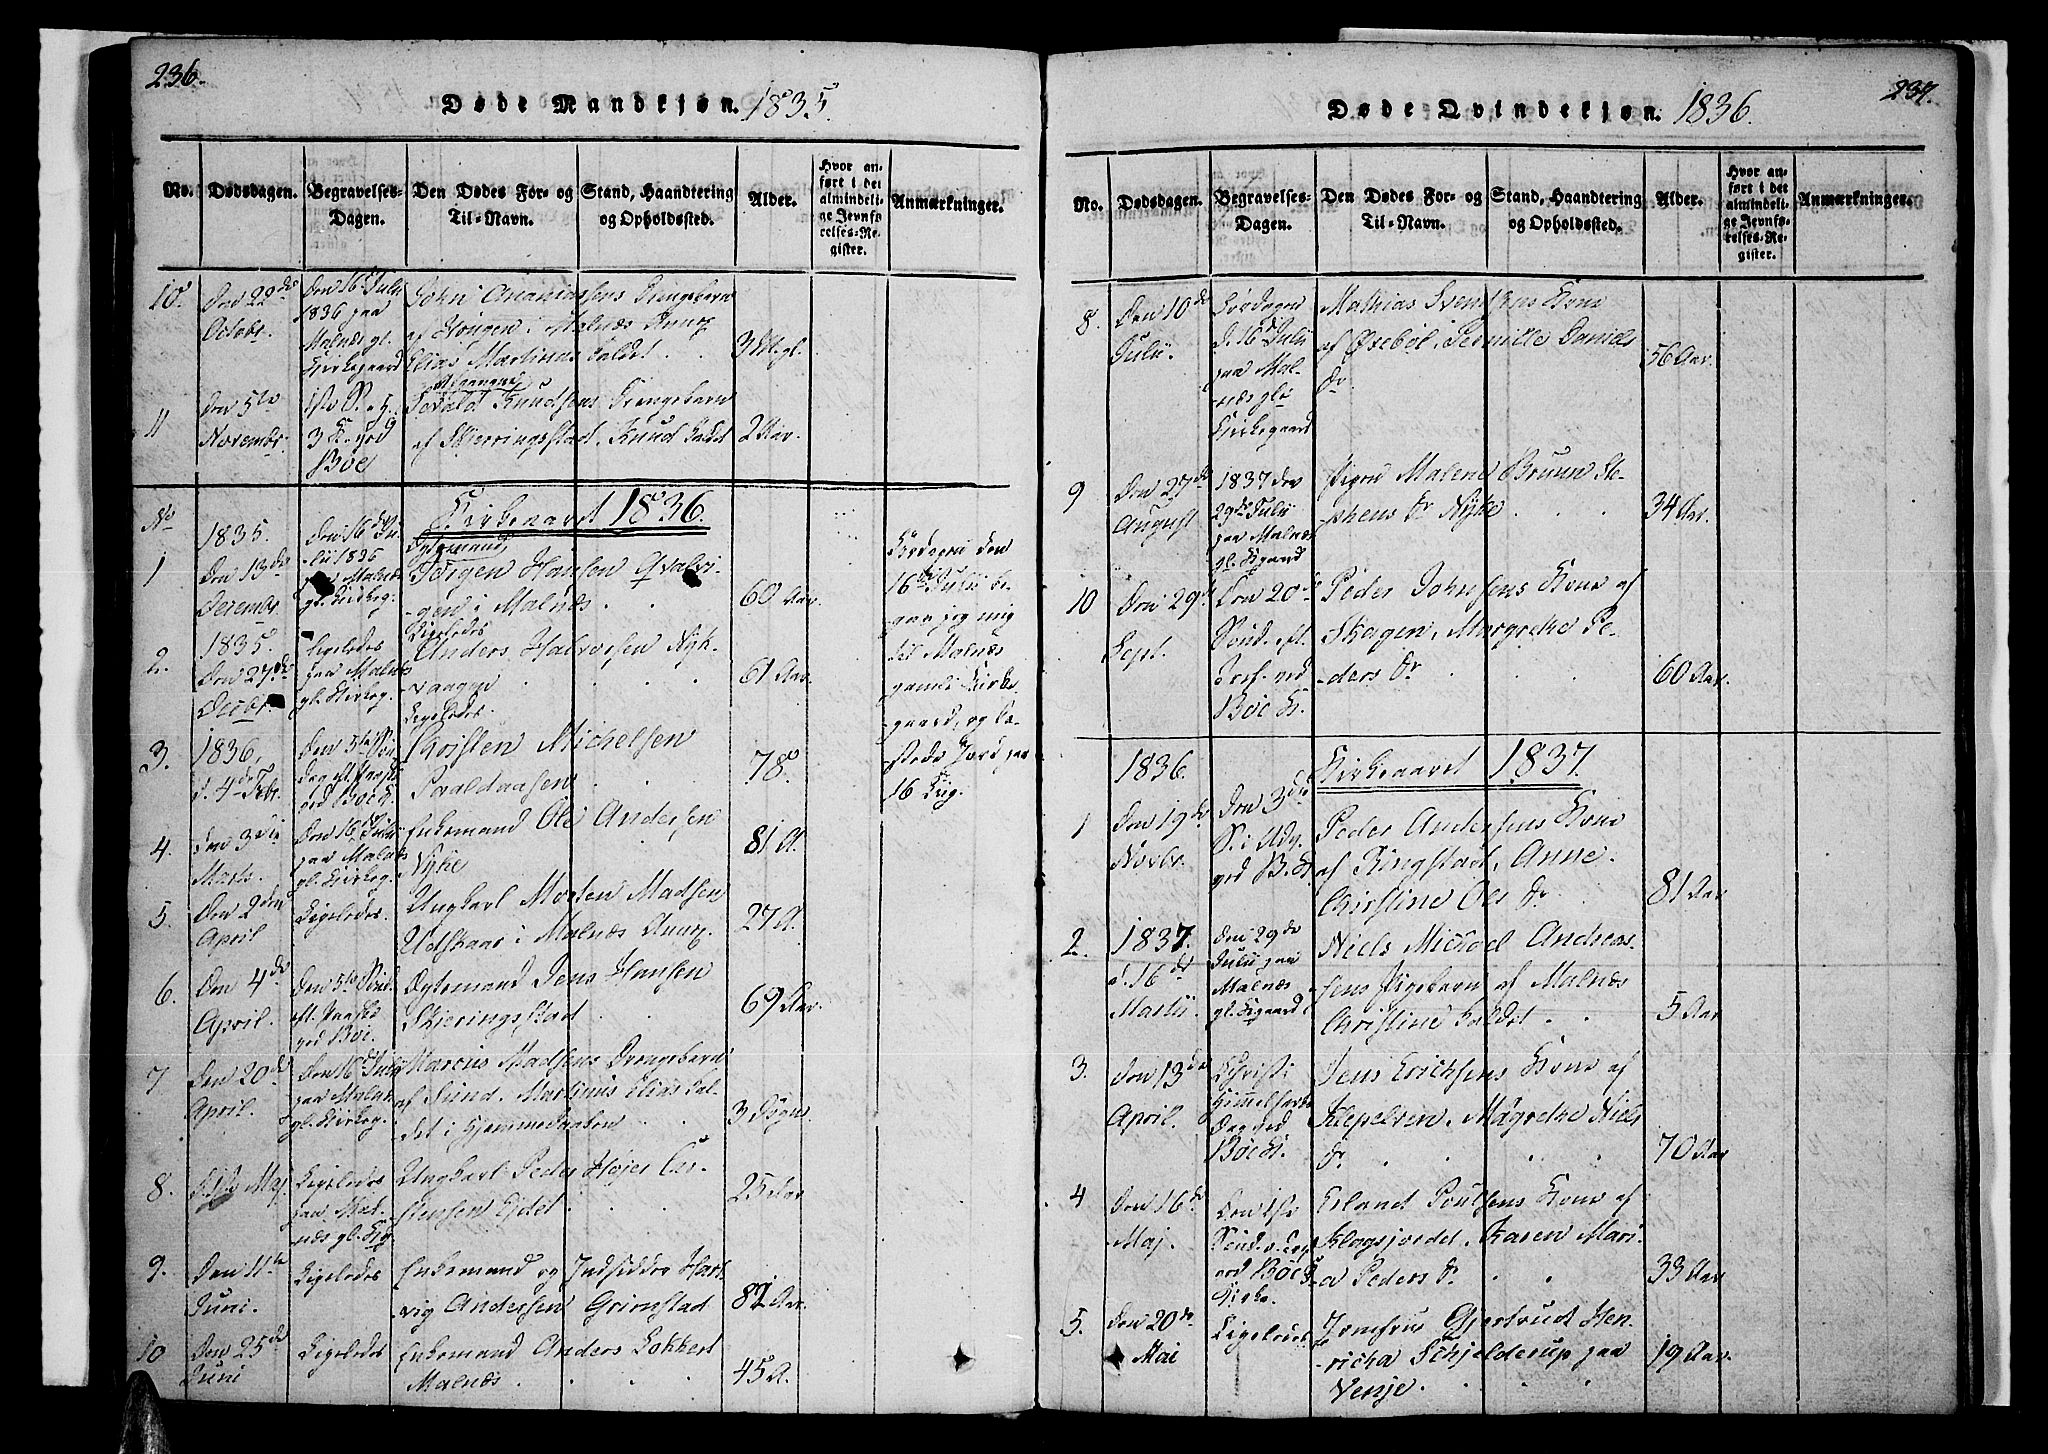 236.
Døde Mandkjøn. 1835.
No.
Dødsdagen.
Begravelses-
Dagen.
Den Dødes For- og
Til-Navn.
Stand, Haandtering
og Opholdssted.
Alder.
Hvor an-
ført i det
almindeli-
ge Jevnfø-
relses-Re-
gister.
Anmærkninger.
10.
Den 22de
Octobr.
Den 16de Juli
1836 paa
Malnæs gl.
Kirkegaard
John Ananiassens Drengebarn
af Hougen i Malnæs Annex
Elias Martinus kaldet . .
3 Mgl.
11
Den 5te
Novembr.
3 K. ved
Boe
Sevald Knudsens Drengebarn
af Skierringstad, Knud kaldet
2 Aar.
No
Kirkeaaret 1836.
1
1835.
Den 13de
Decembr.
Den 16de Ju-
lii 1836
paa Malnæs
gl. Kirkeg.
Jørgen Hansen Qvalvi-
gen i Malnæs. .
60 Aar.
Løverdagen den
16de Julii be-
gav jeg mig
til Malnæs
gamle Kirke-
gaard, og ka-
stede Jord paa
16 Liig.
2.
1835.
Den 27de
Decbr.
Ligeledes
paa Malnæs
gl. Kirkeg.
Ligeledes
Anders Halvorsen Nyk-
vaagen . . .
61 Aar.
3.
1836,
d. 4de Febr.
Den 5te Søn-
dag eft. Paaske
ved Boe K.
Ligeledes.
Christen Michelsen
Skaldaasen . .
78.
4.
Den 3die
Marts.
Den 16de Julii
paa Malnæs
gl. Kirkeg.
Enkemand Ole Andersen
Nyke . .
81 A.
5.
Den 2den
April
Ligeledes.
Ungkarl Morten Madsen
Uvlskaar i Malnæs Annex.
27 A.
6.
Den 4de
April.
Den 5te Sønd.
eft. Paaske
ved Boe.
Ægtemand Jens Hansen
Skierringstad . .
69 Aar.
7.
Den 20de
April.
Den 16de Julii
paa Malnæs
gl. Kirkeg.
Marcus Madsens Drengebarn
af Sund, Martinus Elias kal-
det i Hjemmedaaben . .
3 Døgn.
8.
Maj.
Ligeledes
paa Mal-
næs gl. Kg.
Ungkarl Peder Høyer Car-
stensen Ejdet . .
25 Aar
9.
Den 11te
Juni.
Ligeledes
Enkemand og Indsidder Hart-
vig Andersen Grimstad
82 Aar.
10
Den 25de
Juni
Ligeledes
Enkemand Anders Lokkert
Malnæs . . .
45 A.
237.
Døde Qvindekjøn. 1836.
No.
Dødsdagen.
Begravelses-
Dagen.
Den Dødes For- og
Til-Navn.
Stand, Haandtering
og Opholdssted.
Alder.
Hvor an-
ført i det
almindeli-
ge Jevnfø-
relses-Re-
gister.
Anmærkninger.
8.
Den 10de
Julii.
Løvdagen
d. 16de Julii
paa Mal-
næs gle
Kirkegaard
Mathias Svendsens Kone
af Øxebøl, Pernille Daniels
Dr.
56 Aar.
9
Den 27de
August
1837 den
29de Julii
paa Malnæs
gl. Kgaard
Pigen Malene Bruun Ste-
phens Dr. Nyke . . .
34 Aar.
10
Den 29de
Sept.
Den 20de
Sønd. eft.
Tref. ved
Boe K.
Peder Johnsens Kone af
Skagen, Margrethe Pe-
ders Dr. . . .
60 Aar.
1836.
Kirkeaaret 1837.
1
Den 19de
Novbr.
Den 3die
S. i Adv.
ved B. K.
Peder Andersens Kone
af Ringstad, Anne
Christine Ols Dr.
81 Aar
2.
1837.
d. 16de
Martii
Den 29de
Julii paa
Malnæs
gl. Kgaard
Niels Michael Andreas-
sens Pigebarn af Malnæs
Christine kaldet . .
5 Aar
3.
Den 13de
April.
Christi
Himmelfarts
Dag ved
Boe K.
Jens Erichsens Kone af
Klepelven, Magrethe Niels
Dr. . . . .
70 Aar
4
Den 16de
Maj.
Den 1ste
ved Boe
Kirke.
Erland Poulsens Kone af
Klogsjordet, Karen Mari-
a Peders Dr. . .
33 Aar
5.
Den 20de
Mai
Ligeledes
Jomfrue Gjertrud Hen-
richa Schjelderup paa
Venje . . .
19 Aar.